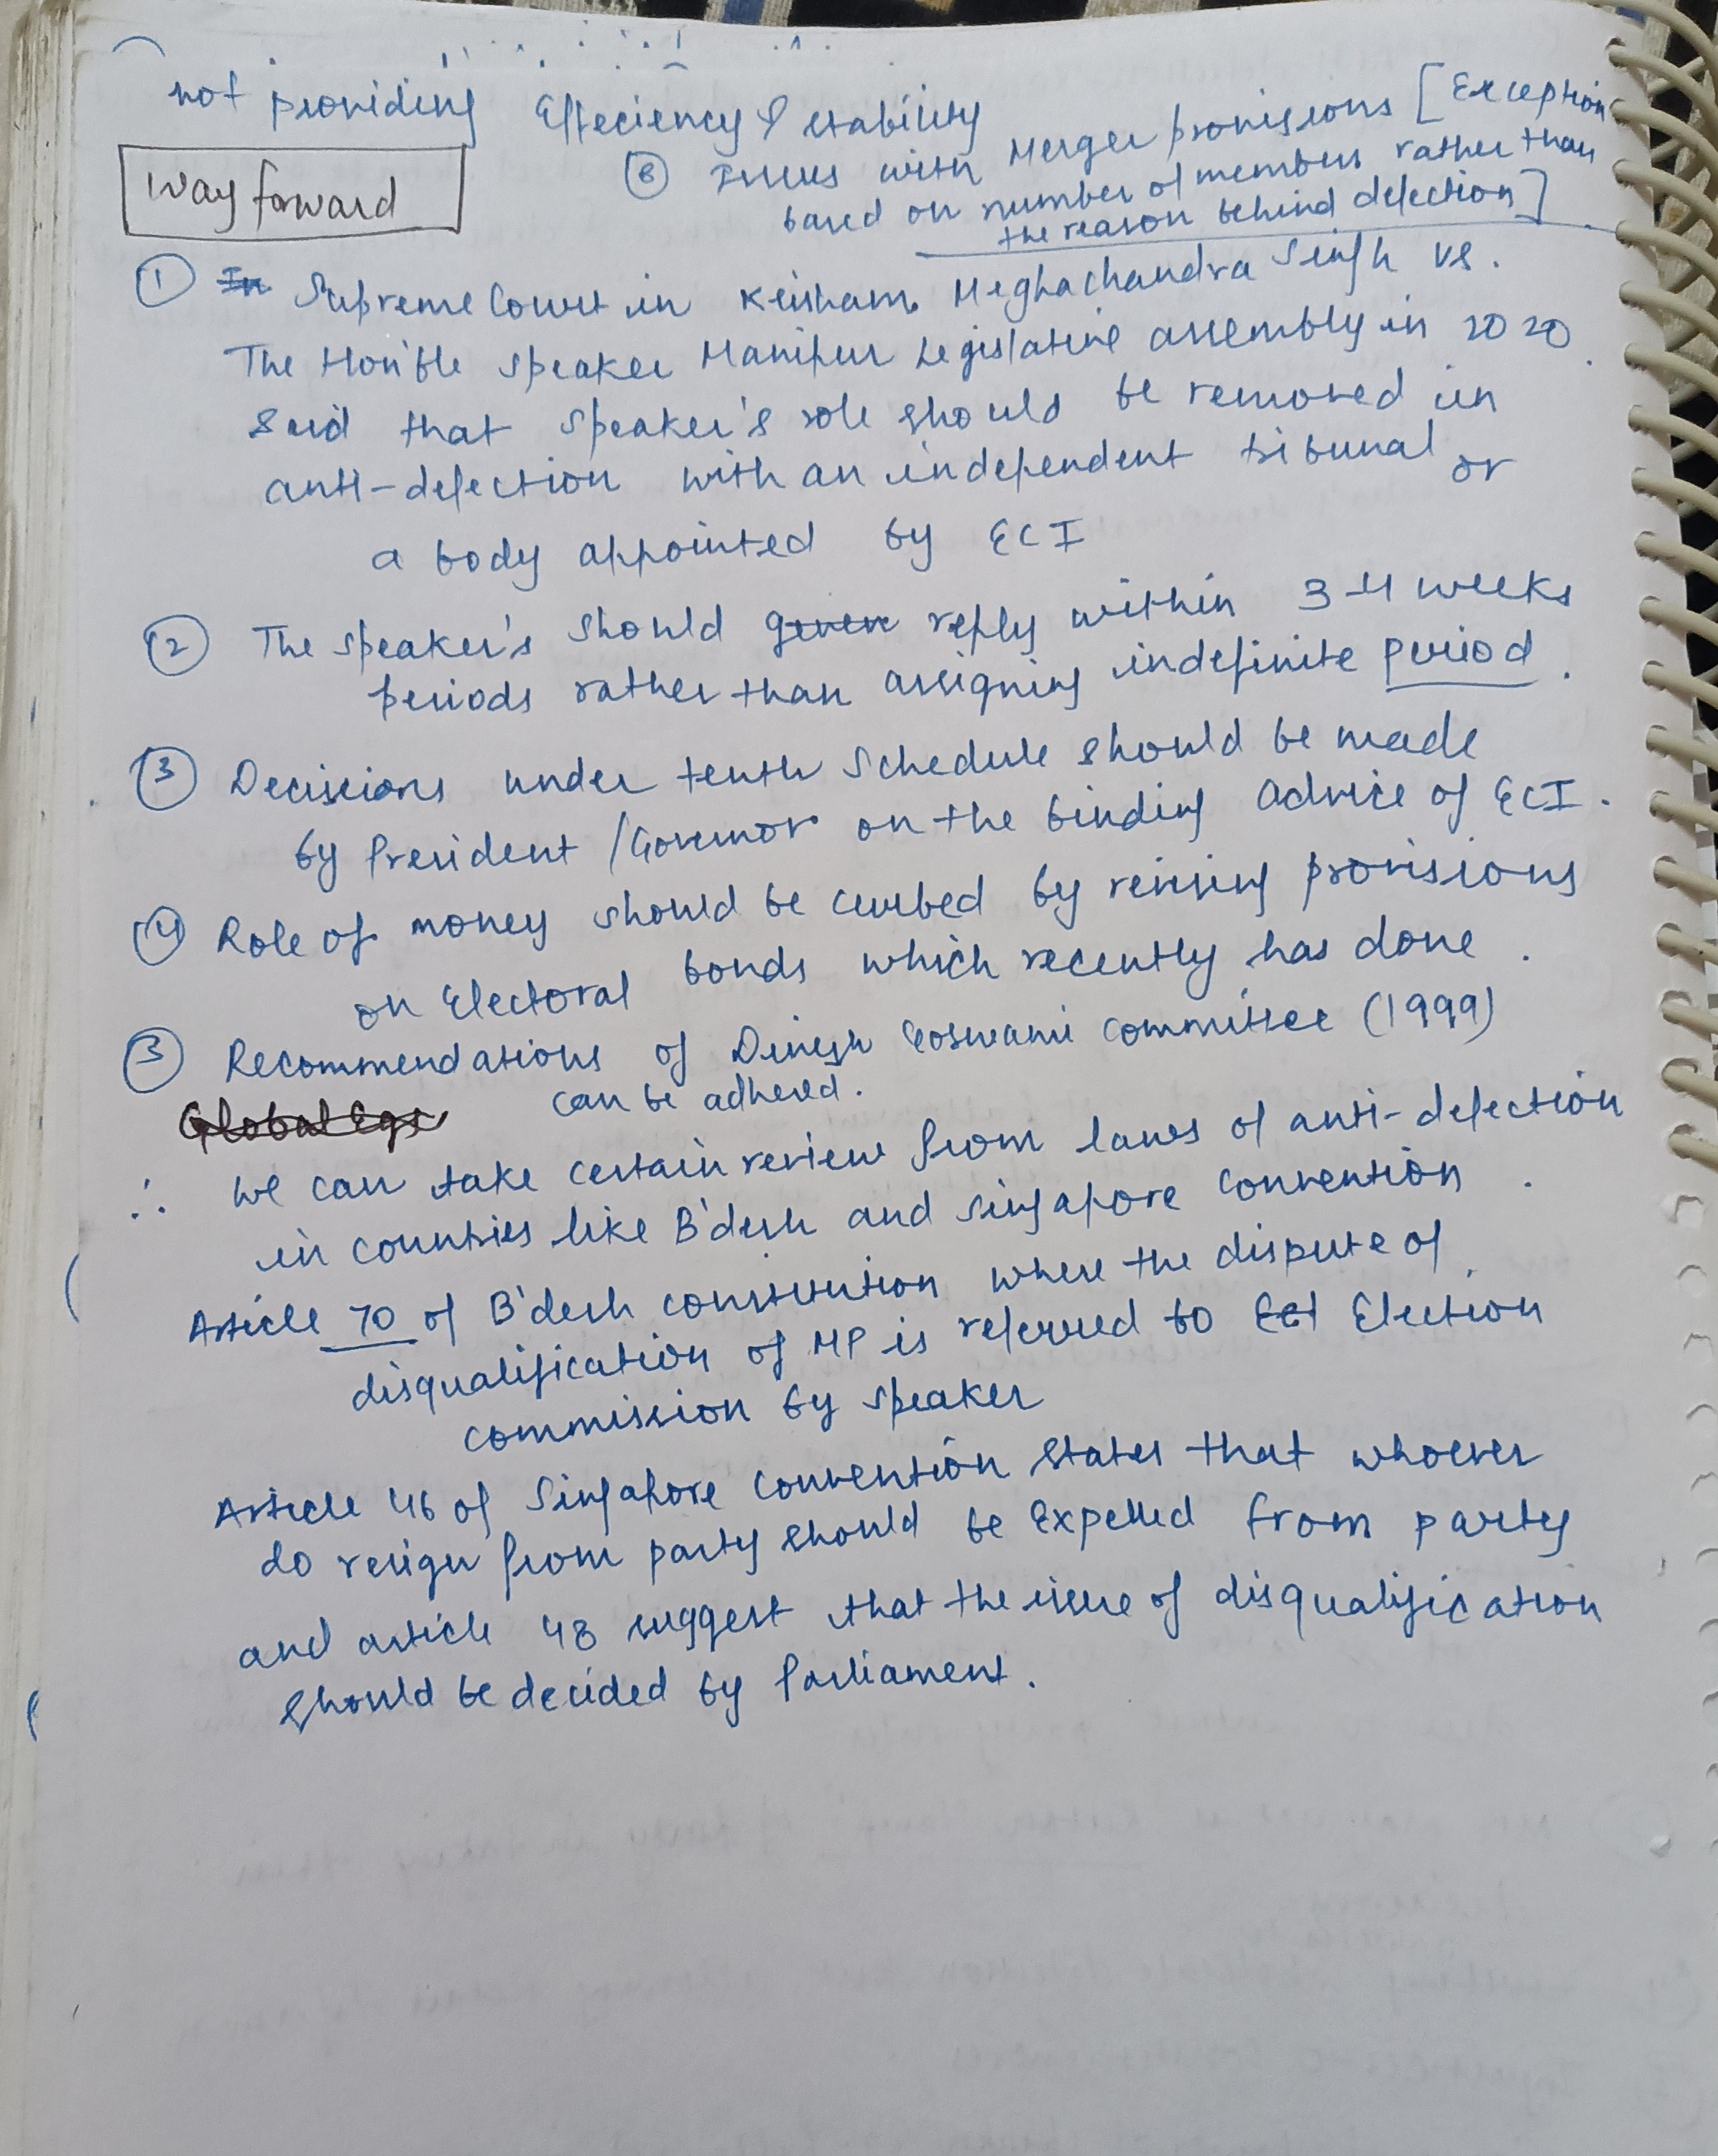 not providing Effeciency & stability
⑥ Issues with Merger provisions [Exception
based on number of members rather than
the reason behind defection]
Way forward
① In Supreme Court in Keisham Meghachandra Singh vs.
The Hon'ble Speaker Manipur Legislative assembly in 2020
said that speaker's role should be removed in
anti-defection with an independent tribunal or
a body appointed by ECI
② The speaker's should given reply within 3-4 weeks
periods rather than assigning indefinite period.
③ Decisions under tenth Schedule should be made
by President / Governor on the binding advice of ECI.
④ Role of money should be curbed by revising provisions
on Electoral bonds which recently has done.
⑤ Recommendations of Dinesh Goswami committee (1999)
can be adhered.
Global Egs
∴ We can take certain review from laws of anti-defection
in countries like B'desh and Singapore convention.
Article 70 of B'desh constitution where the dispute of
disqualification of MP is referred to ECI Election
commission by speaker
Article 46 of Singapore convention states that whoever
do resign from party should be Expelled from party
and article 48 suggest that the issue of disqualification
should be decided by Parliament.